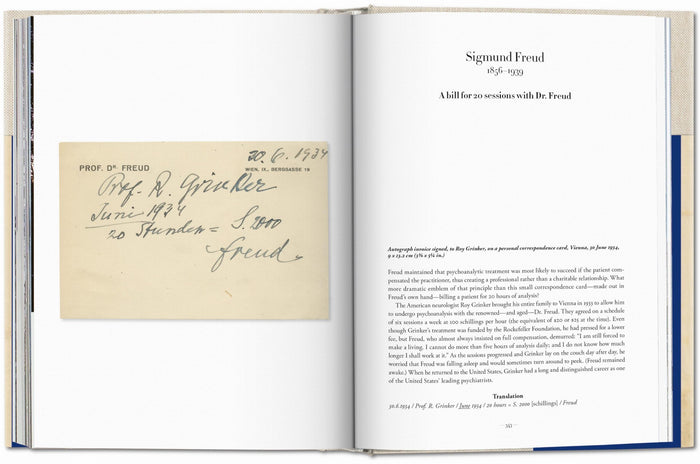 30. 6. 1934
PROF. DR. FREUD
WIEN, IX., BERGGASSE 19
Prof. R. Grinker
Juni 1934
20 Stunden = S. 2000
Freud
Sigmund Freud
1856–1939
A bill for 20 sessions with Dr. Freud
Autograph invoice signed, to Roy Grinker, on a personal correspondence card, Vienna, 30 June 1934,
9 x 13.2 cm (3⅝ x 5¼ in.)
Freud maintained that psychoanalytic treatment was most likely to succeed if the patient com-
pensated the practitioner, thus creating a professional rather than a charitable relationship. What
more dramatic emblem of that principle than this small correspondence card—made out in
Freud's own hand—billing a patient for 20 hours of analysis?
The American neurologist Roy Grinker brought his entire family to Vienna in 1933 to allow him
to undergo psychoanalysis with the renowned—and aged—Dr. Freud. They agreed on a schedule
of six sessions a week at 100 schillings per hour (the equivalent of $20 or $25 at the time). Even
though Grinker's treatment was funded by the Rockefeller Foundation, he had pressed for a lower
fee, but Freud, who almost always insisted on full compensation, demurred: "I am still forced to
make a living. I cannot do more than five hours of analysis daily; and I do not know how much
longer I shall work at it." As the sessions progressed and Grinker lay on the couch day after day, he
worried that Freud was falling asleep and would sometimes turn around to peek. (Freud remained
awake.) When he returned to the United States, Grinker had a long and distinguished career as one
of the United States' leading psychiatrists.
Translation
30.6.1934 / Prof. R. Grinker / June 1934 / 20 hours = S. 2000 [schillings] / Freud